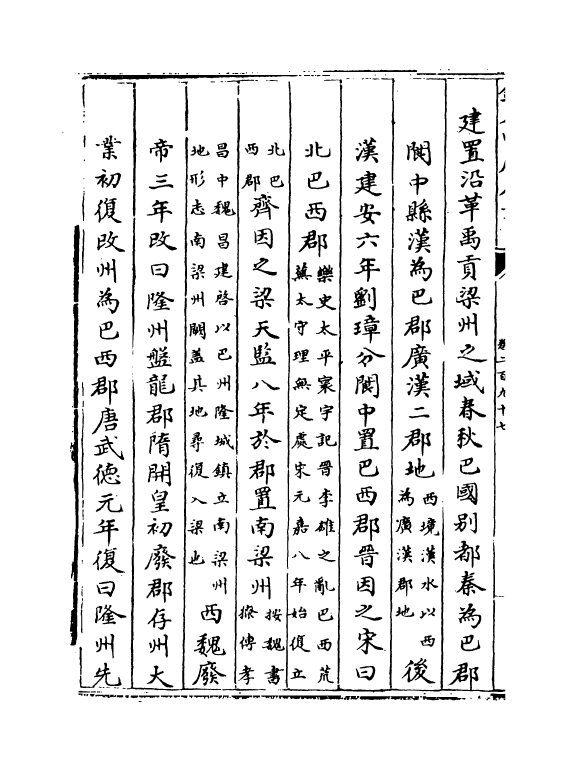 建置沿革禹貢梁州之域春秋巴國别都秦為巴郡
閬中縣漢為巴郡廣漢二郡地西境漢水以西為廣漢郡地後
漢建安六年劉璋分閬中置巴西郡晉因之宋曰
北巴西郡樂史太平寰宇記晉李雄之亂巴西荒蕪太守理無定處宋元嘉八年始復立
北巴西郡齊因之梁天監八年於郡置南梁州按魏書撡傳孝
昌中魏昌建啓以巴州隆城鎮立南梁州地形志南梁州闕蓋其地尋復入梁也西魏廢
帝三年改曰隆州盤龍郡隋開皇初廢郡存州大
業初復改州為巴西郡唐武德元年復曰隆州先
卷二百九十七